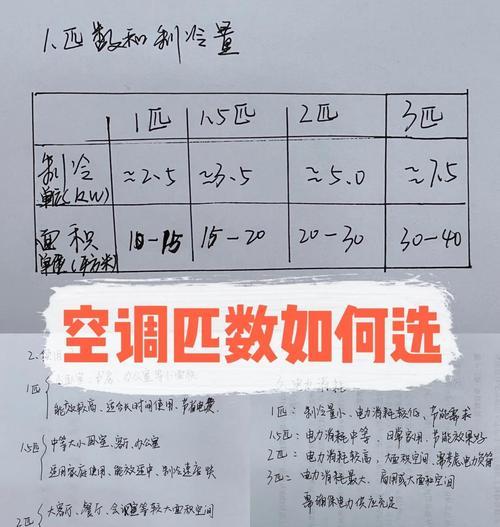 1.匹数和制冷量
1匹 1.5匹 2匹 3匹
制冷 ≈2.5 ≈3.5 ≈5.0 ≈7.5
单位(KW)
面积 10-15 15-20 20-30 30-40
单位(平方米)
空调匹数如何选
2.使用
1匹 办公室等小面积
能效较高、适合长时间使用、节省电费
1.5匹 中等大小卧室、客厅、办公室
适用家庭使用、能效适中、制冷速度快
2匹 大客厅、餐厅、会议室等较大面积空间
电力消耗
1匹:制冷量小、电力消耗较低、节能需求
1.5匹:电力消耗中等、日常家用、节能效果好
2匹:电力消耗较高、大面积空间、需考虑电力负荷
3匹:电力消耗最大、商用或大面积空间
需确保电力供应充足